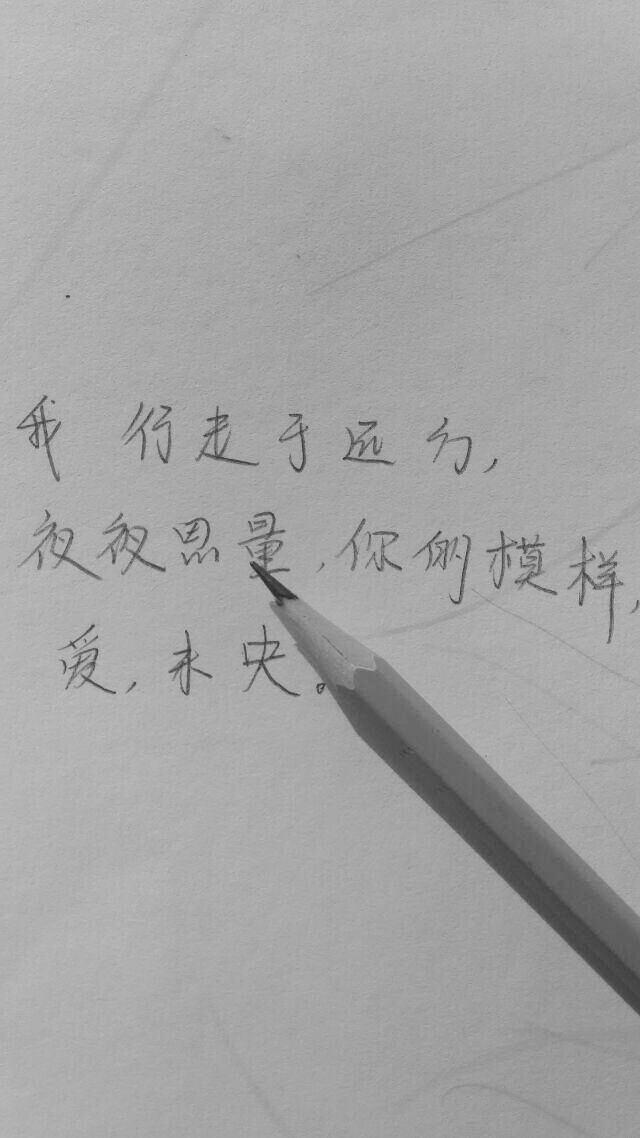 我 行走于远方,
夜夜思量,你俩模样,
爱,未央。